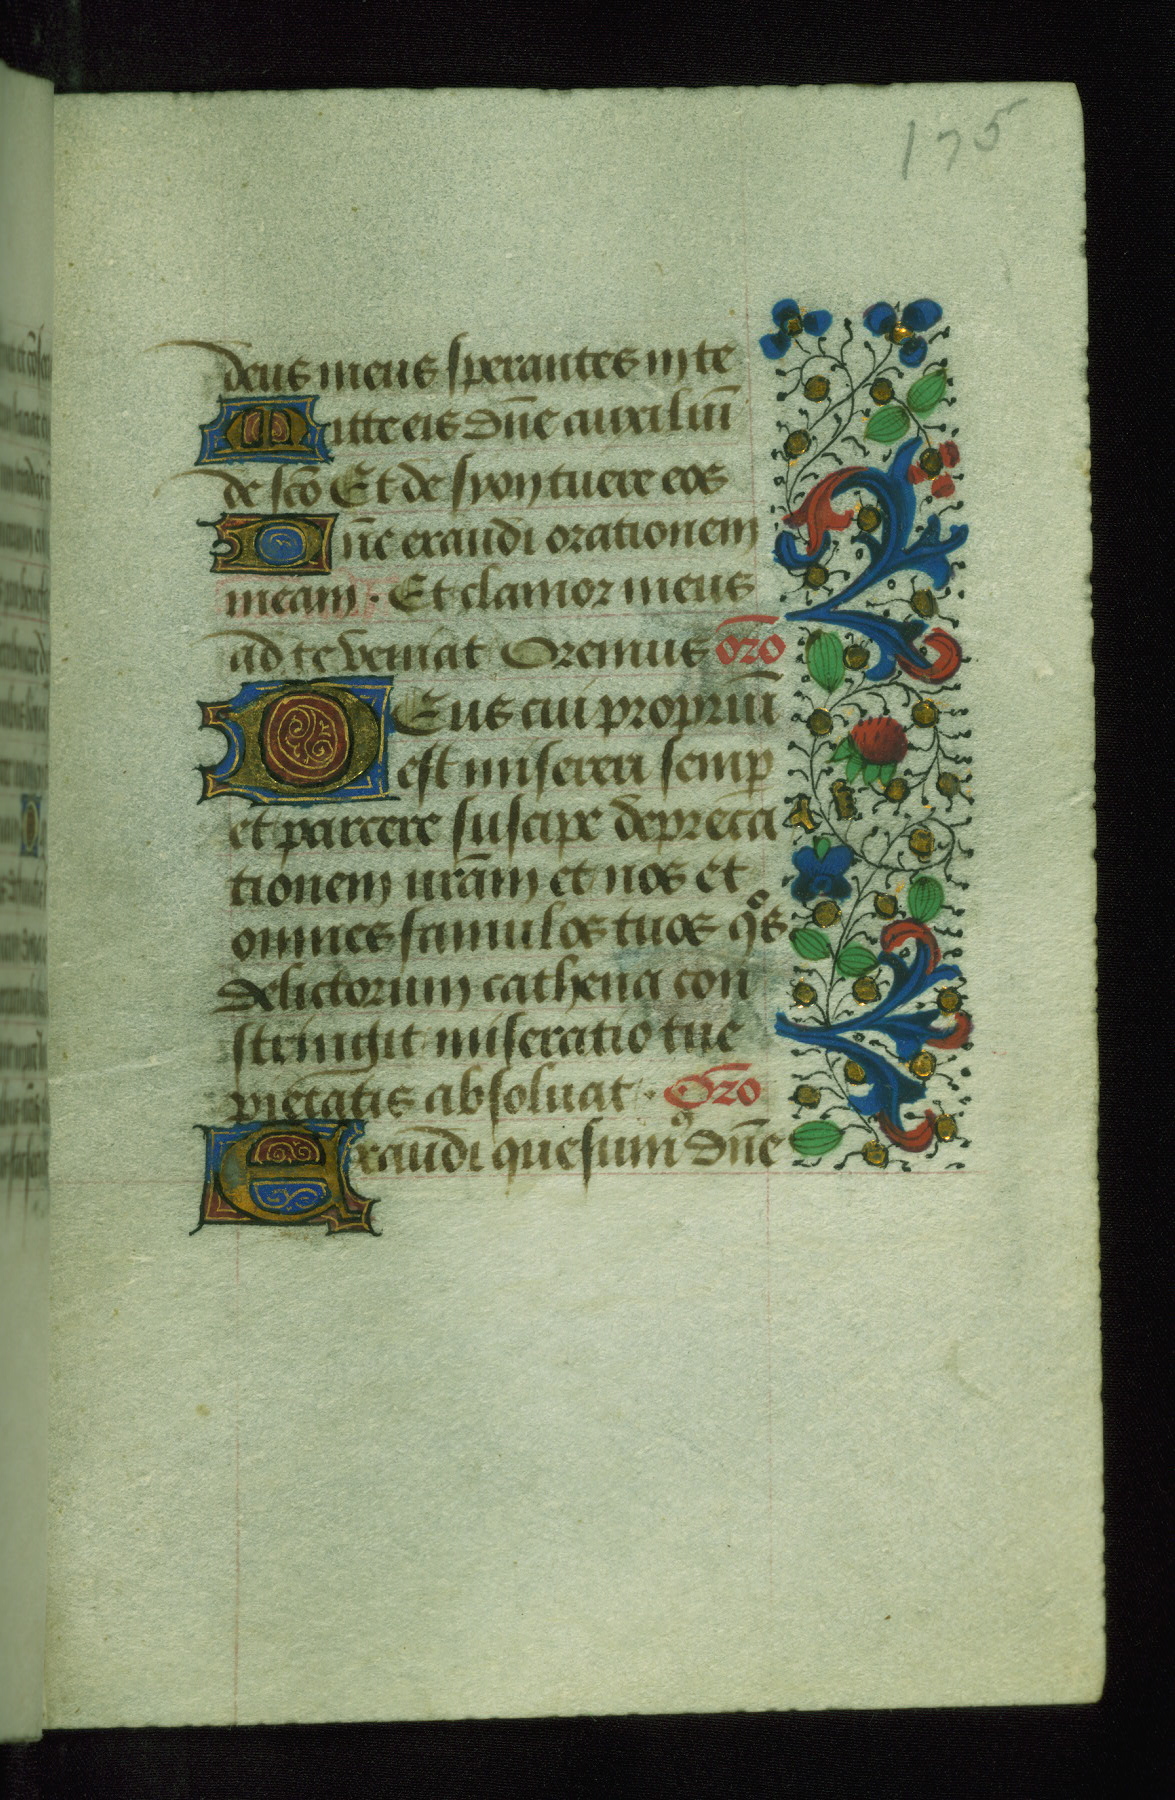 175
deus meus sperantes in te
Mitte eis dñe auxiliũ
de sc̃o Et de syon tuere eos
Dñe exaudi orationem
meam · Et clamor meus
ad te veniat Oremus oro
DEus cui propriũ
est misereri semꝑ
et parcere suscipe depreca
tionem nr̃am et nos et
omnes famulos tuos qͦs
delictorum cathena con
stringit miseratio tue
pietatis absoluat · Oro
Exaudi quesumꝰ dñe